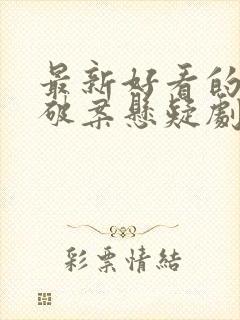 最新好看的
破案懸疑劇
彩票情結